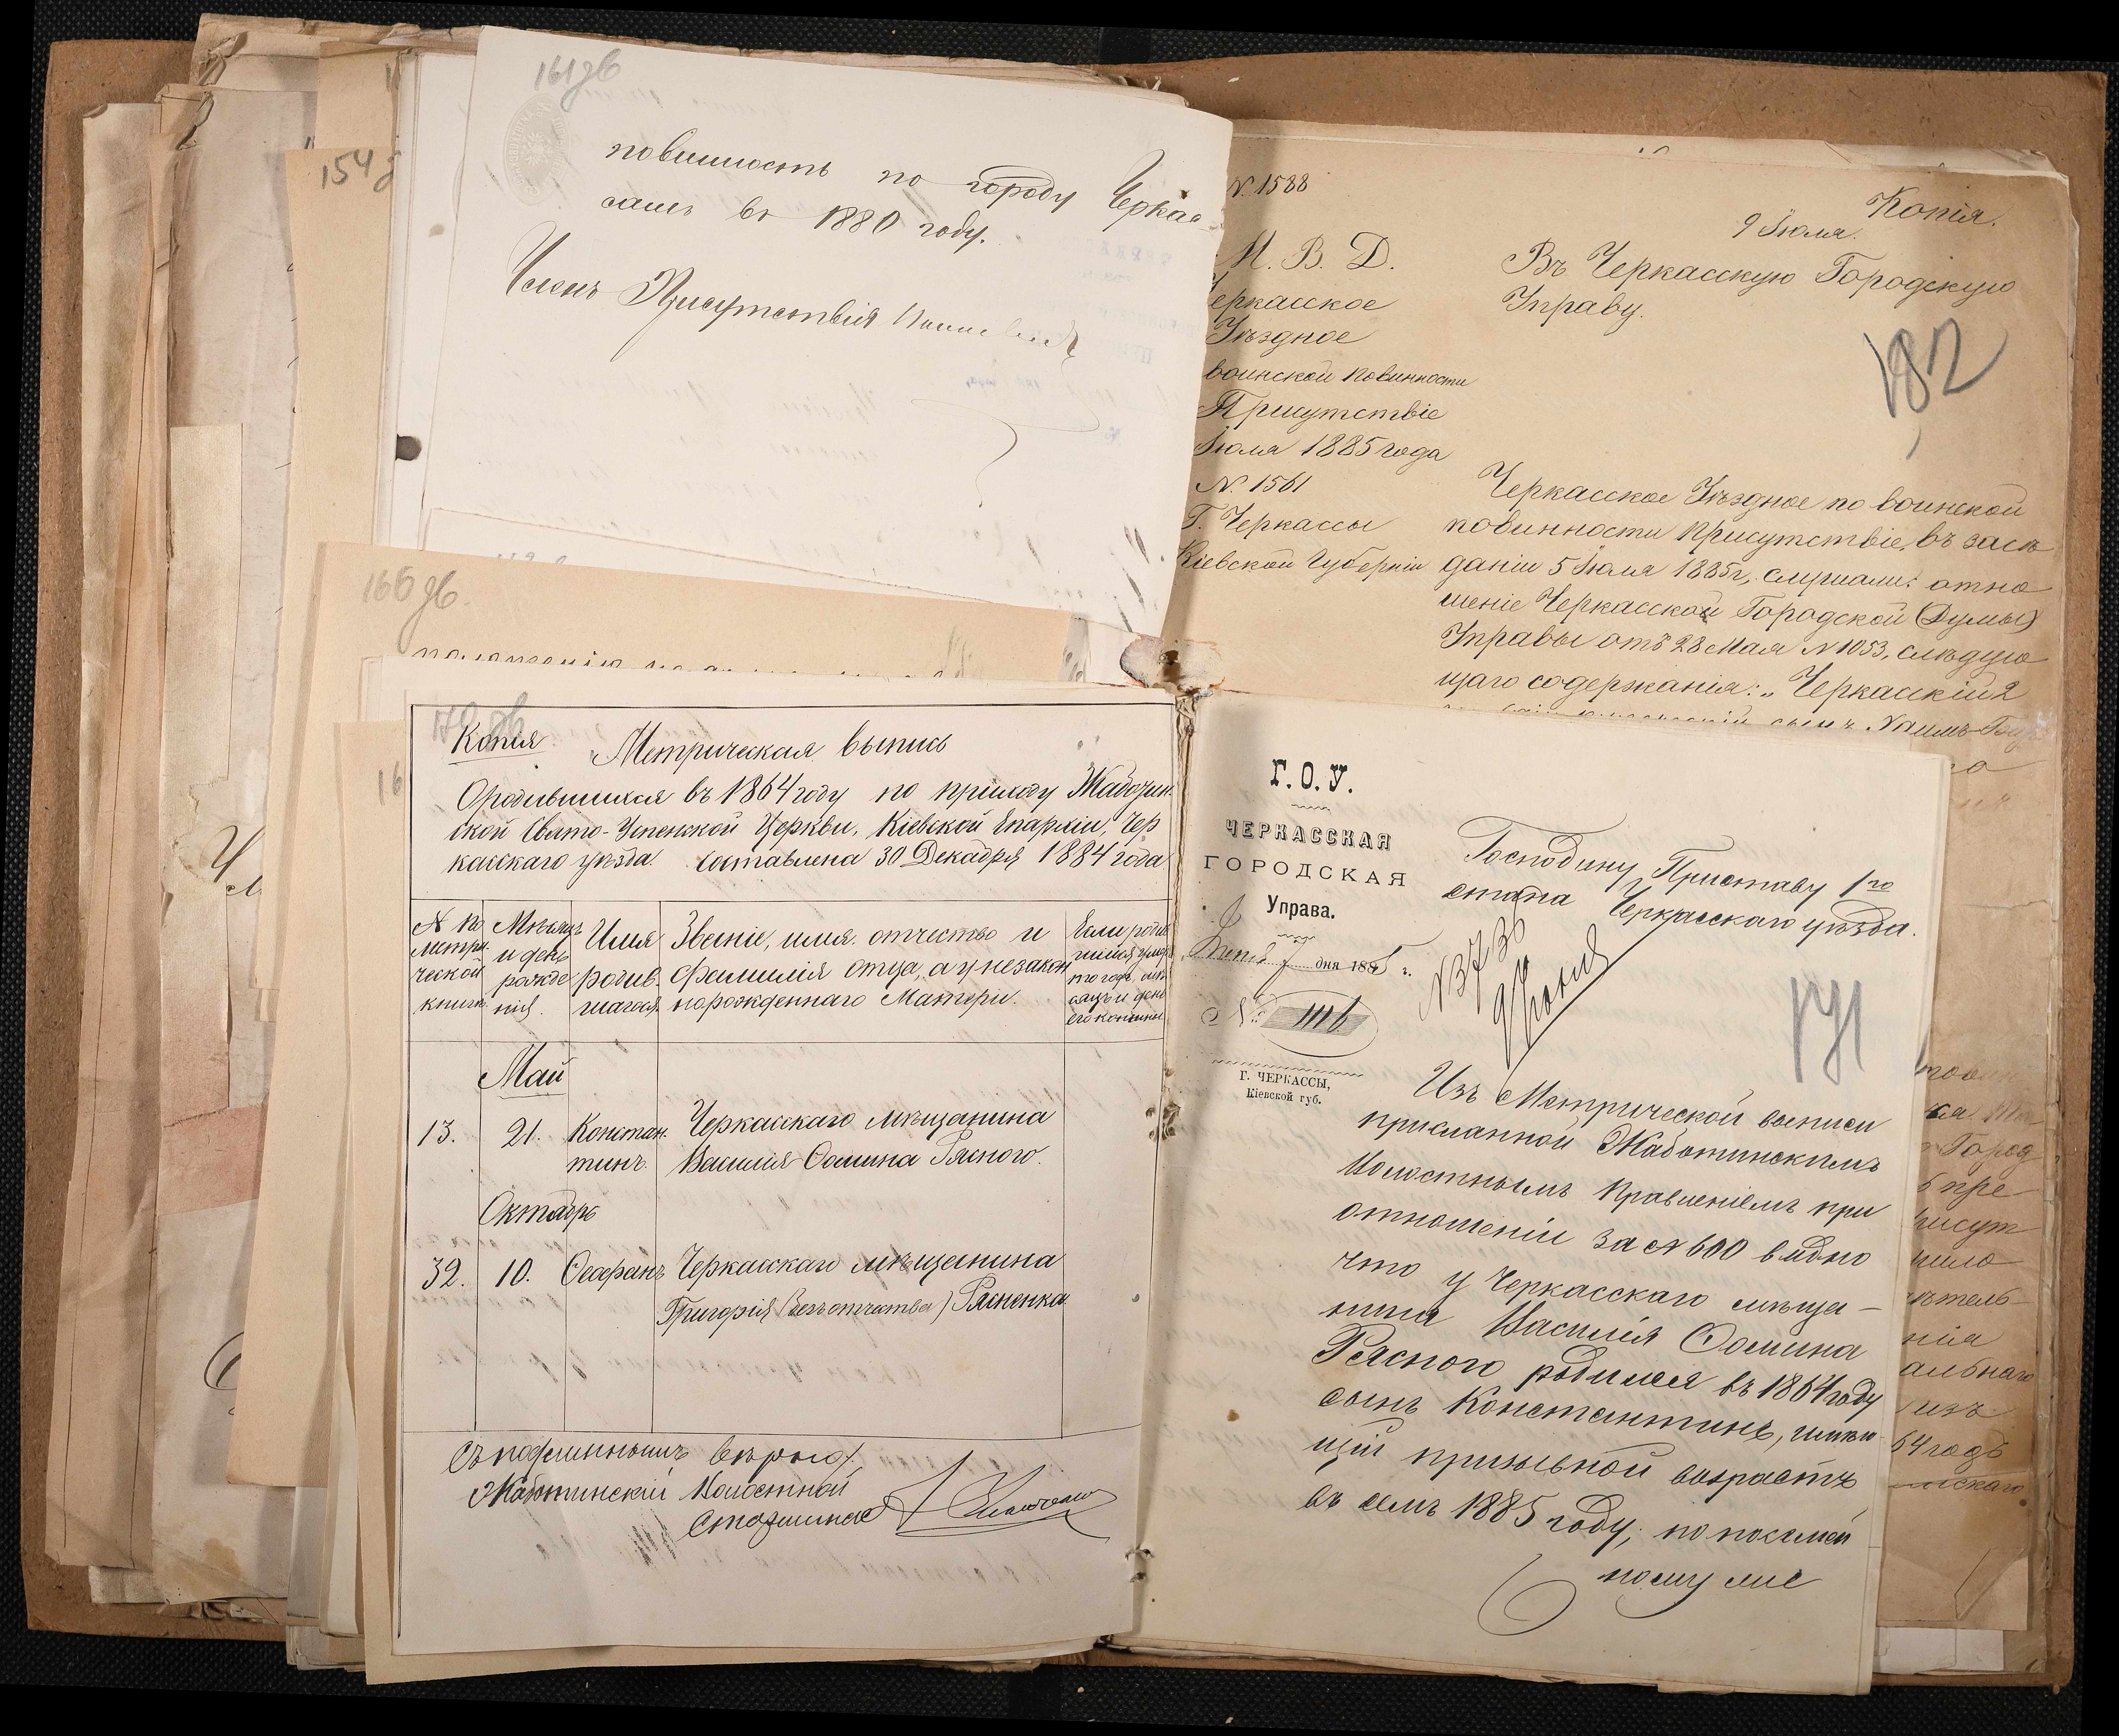 161 зв
повинность по городу Черкас-
самъ въ 1880 году.
Членъ Присутствія
154 з
166 зв.
N. 1588
Копія.
9 Іюля.
М. В. Д.
Черкасское
Уѣздное
воинской повинности
Присутствіе
Іюля 1885 года
N. 1561
Г. Черкассы
Кіевской Губерніи
Въ Черкасскую Городскую
Управу.
182
Черкасское Уѣздное по воинской
повинности Присутствіе, въ засѣ
даніи 5 Іюля 1885 г., слушали: отно
шеніе Черкасской Городской (Думы)
Управы отъ 28 Мая N 1053, слѣдую
щаго содержанія: „Черкасскій 2
Копия
Метрическая выпись
О родившихся въ 1864 году по приходу Жаботин-
ской Свято-Успенской Церкви, Кіевской Епархіи, Чер
касскаго уѣзда. Составлена 30 Декабря 1884 года
N по
метри-
ческой
книги.
Мѣсяцъ
и день
рожде
нія.
Имя
родив-
шагося.
Званіе, имя. отчество и
фамилія отца, а у незакон
норожденнаго Матери.
Если родив
шійся умеръ
то годъ, мѣ
сяцъ и день
его кончины
Май
13. 21. Констан- Черкасскаго мѣщанина
тинъ. Василія Ѳомина Ряснаго.
Октябрь
32. 10. Ѳеофанъ Черкасскаго мѣщанина
Григорія (безъ отчества) Рясненка
Съ подлиннымъ вѣрно:
Жаботинскій Волостной
Старшина
Г. О. У.
ЧЕРКАССКАЯ
ГОРОДСКАЯ
Управа.
7 дня 1885 г.
№ 1116
Г. ЧЕРКАССЫ,
Кіевской губ.
Господину Приставу 1го
стана Черкасскаго уѣзда.
N 3736
171
Изъ Метрической выписи
присланной Жаботинскимъ
Волостнымъ Правленіемъ при
отношеніи за N 600 видно
что у Черкасскаго мѣща-
нина Василія Ѳомина
Рясного родился въ 1864 году
сынъ Константинъ, имѣю-
щій призывной возрастъ
въ семъ 1885 году;